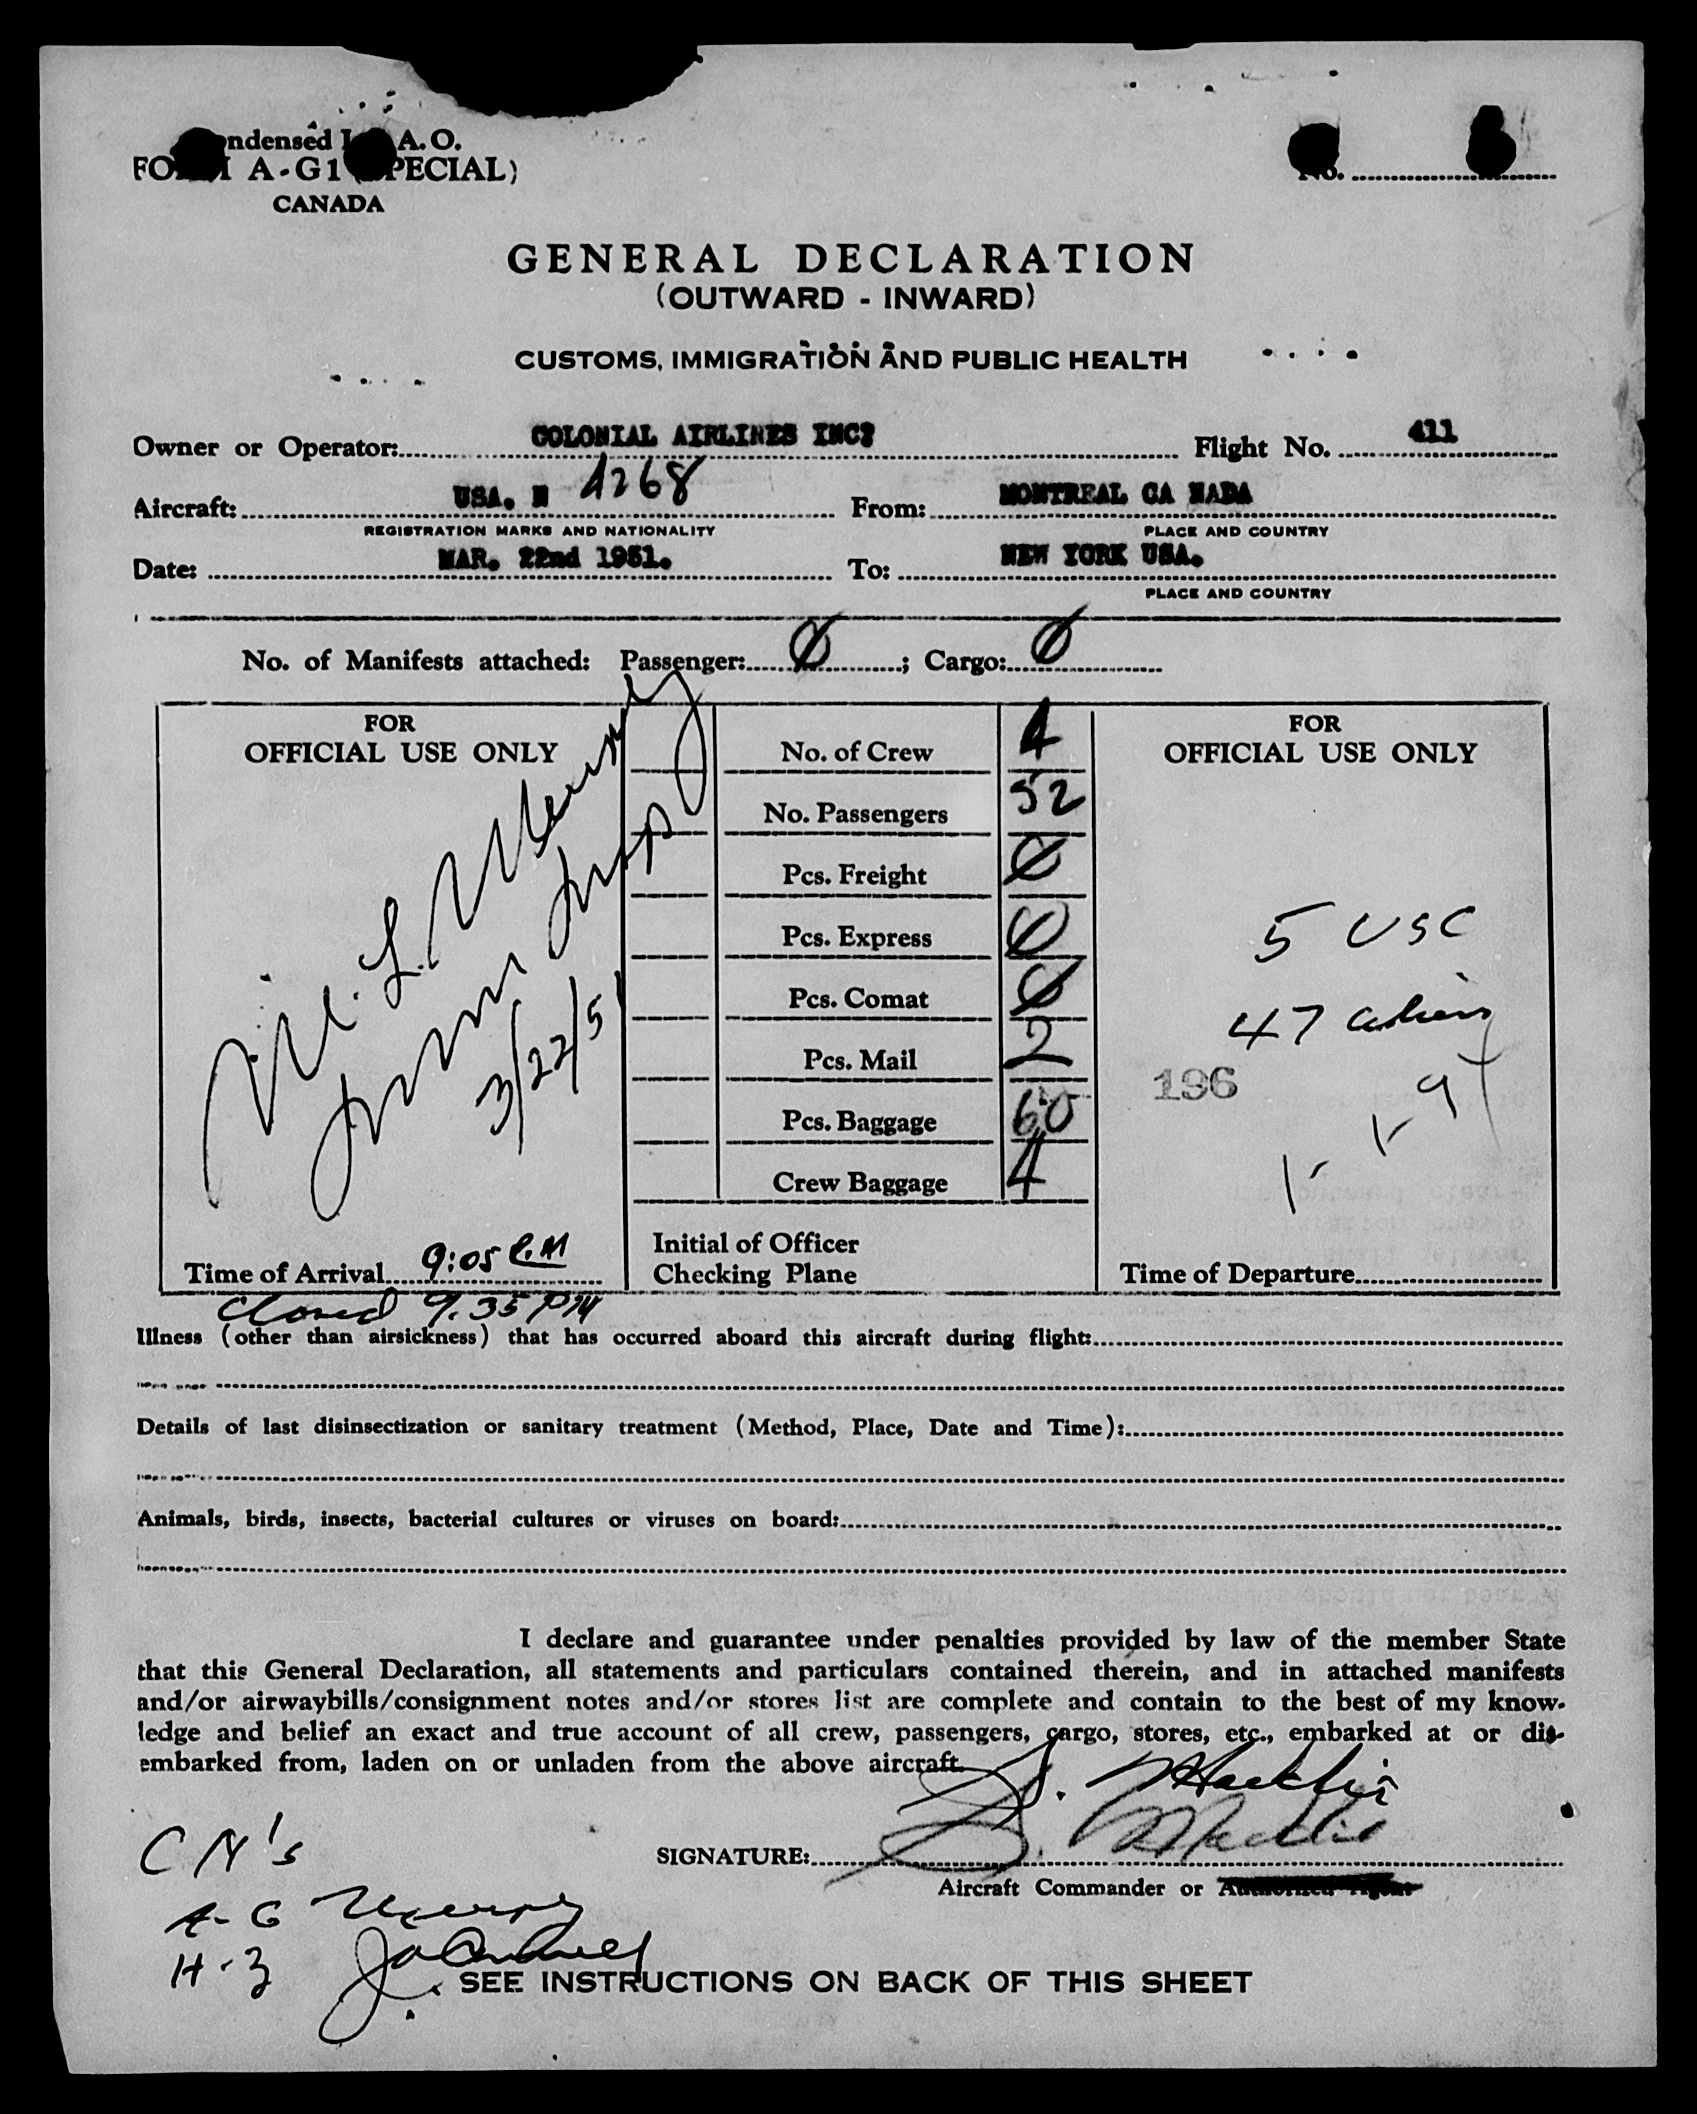 ndensed I A. O.
FO M A-G1 ( PECIAL)
CANADA
No.
GENERAL DECLARATION
(OUTWARD - INWARD)
CUSTOMS, IMMIGRATION AND PUBLIC HEALTH
Owner or Operator: COLONIAL AIRLINES INC? Flight No. 411
Aircraft: USA. N 4268 From: MONTREAL CA NADA
REGISTRATION MARKS AND NATIONALITY PLACE AND COUNTRY
Date: MAR. 22nd 1951. To: NEW YORK USA.
PLACE AND COUNTRY
No. of Manifests attached: Passenger: 0; Cargo: 0
FOR
OFFICIAL USE ONLY
3/22/51
Time of Arrival 9:05 P.M
Closed 9.35 PM
No. of Crew 4
No. Passengers 52
Pcs. Freight 0
Pcs. Express 0
Pcs. Comat 0
Pcs. Mail 2
Pcs. Baggage 60
Crew Baggage 4
Initial of Officer
Checking Plane
FOR
OFFICIAL USE ONLY
5 USC
47 aliens
196
Time of Departure
Illness (other than airsickness) that has occurred aboard this aircraft during flight:
Details of last disinsectization or sanitary treatment (Method, Place, Date and Time):
Animals, birds, insects, bacterial cultures or viruses on board:
I declare and guarantee under penalties provided by law of the member State
that this General Declaration, all statements and particulars contained therein, and in attached manifests
and/or airwaybills/consignment notes and/or stores list are complete and contain to the best of my know-
ledge and belief an exact and true account of all crew, passengers, cargo, stores, etc., embarked at or dis-
embarked from, laden on or unladen from the above aircraft.
SIGNATURE:
Aircraft Commander or Authorized Agent
C N's
A-G Murphy
H-3
SEE INSTRUCTIONS ON BACK OF THIS SHEET